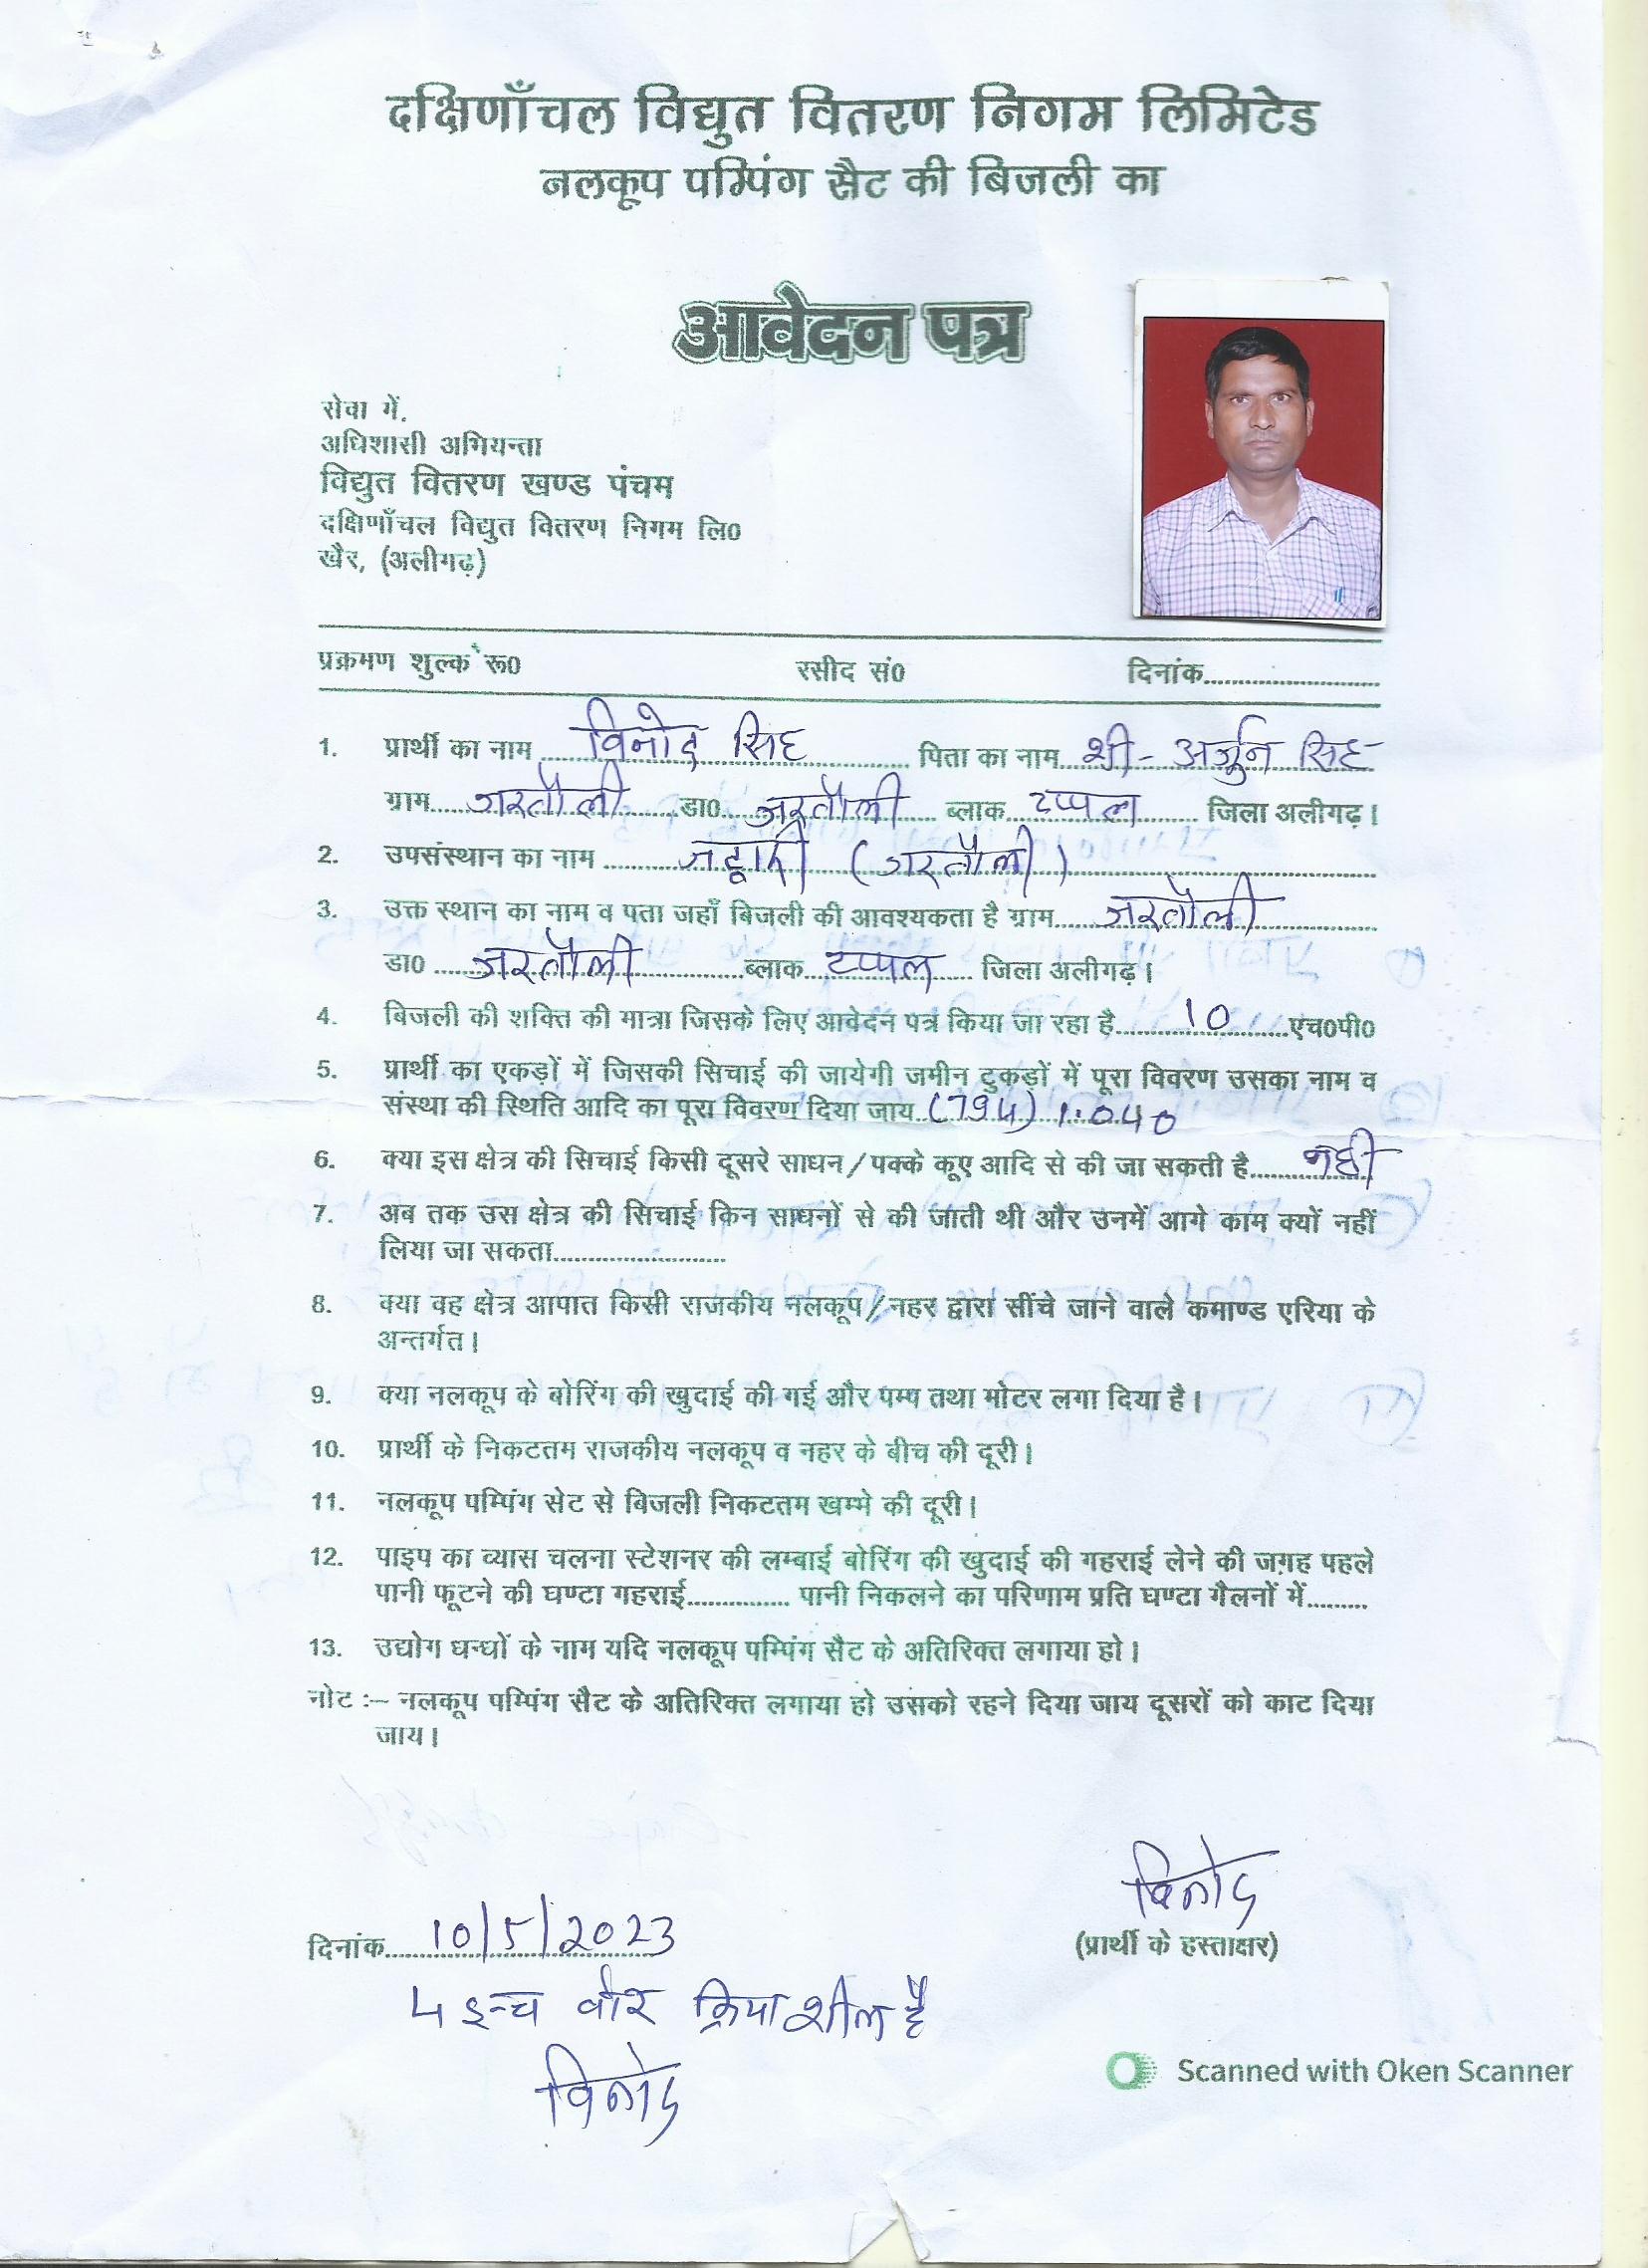 दक्षिणाँचल विद्युत वितरण निगम लिमिटेड
नलकूप पम्पिंग सैट की बिजली का
आवेदन पत्र
सेवा में,
अधिशासी अभियन्ता
विद्युत वितरण खण्ड पंचम
दक्षिणाँचल विद्युत वितरण निगम लि0
खैर, (अलीगढ़)
प्रक्रमण शुल्क रू0 रसीद सं0 दिनांक
1. प्रार्थी का नाम विनोद सिंह पिता का नाम श्री - अर्जुन सिंह
ग्राम जरतौली डा0 जरतौली ब्लाक टप्पल जिला अलीगढ़।
2. उपसंस्थान का नाम जट्टारी (जरतौली)
3. उक्त स्थान का नाम व पता जहाँ बिजली की आवश्यकता है ग्राम जरतौली
डा0 जरतौली ब्लाक टप्पल जिला अलीगढ़।
4. बिजली की शक्ति की मात्रा जिसके लिए आवेदन पत्र किया जा रहा है 10 एच0पी0
5. प्रार्थी का एकड़ों में जिसकी सिचाई की जायेगी जमीन टुकड़ों में पूरा विवरण उसका नाम व
संस्था की स्थिति आदि का पूरा विवरण दिया जाय (794) 1.040
6. क्या इस क्षेत्र की सिचाई किसी दूसरे साधन/पक्के कूए आदि से की जा सकती है नही
7. अब तक उस क्षेत्र की सिचाई किन साधनों से की जाती थी और उनमें आगे काम क्यों नहीं
लिया जा सकता
8. क्या वह क्षेत्र आपात किसी राजकीय नलकूप/नहर द्वारा सींचे जाने वाले कमाण्ड एरिया के
अन्तर्गत।
9. क्या नलकूप के बोरिंग की खुदाई की गई और पम्प तथा मोटर लगा दिया है।
10. प्रार्थी के निकटतम राजकीय नलकूप व नहर के बीच की दूरी।
11. नलकूप पम्पिंग सेट से बिजली निकटतम खम्भे की दूरी।
12. पाइप का व्यास चलना स्टेशनर की लम्बाई बोरिंग की खुदाई की गहराई लेने की जग़ह पहले
पानी फूटने की घण्टा गहराई पानी निकलने का परिणाम प्रति घण्टा गैलनों में
13. उद्योग धन्धों के नाम यदि नलकूप पम्पिंग सैट के अतिरिक्त लगाया हो।
नोट :– नलकूप पम्पिंग सैट के अतिरिक्त लगाया हो उसको रहने दिया जाय दूसरों को काट दिया
जाय।
विनोद
दिनांक 10/5/2023 (प्रार्थी के हस्ताक्षर)
4 इन्च वोर क्रियाशील है
विनोद
Scanned with Oken Scanner